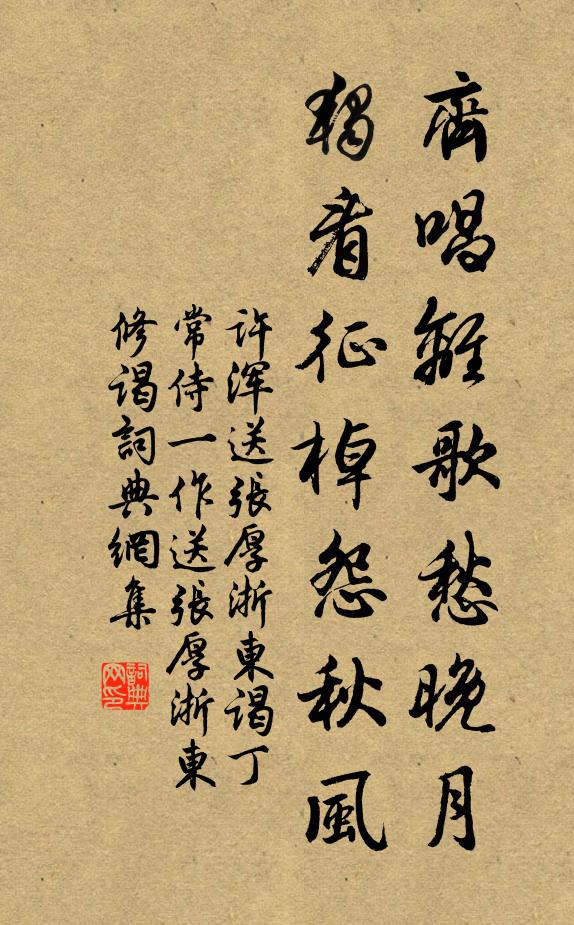 齊唱離歌愁晚月
獨看征棹怨秋風
許渾送張厚浙東謁丁
常侍一作送張厚浙東
修謁詞典網集
詞典网印